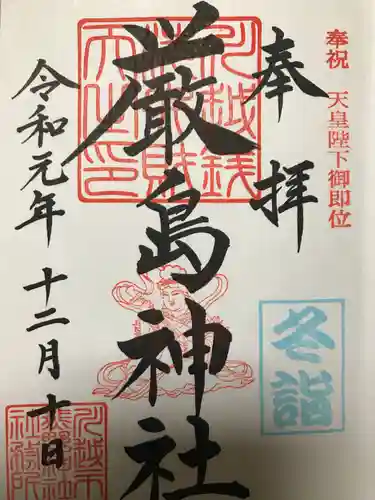 奉祝 天皇陛下御即位
奉拝
冬詣
厳島神社
令和元年 十二月十日